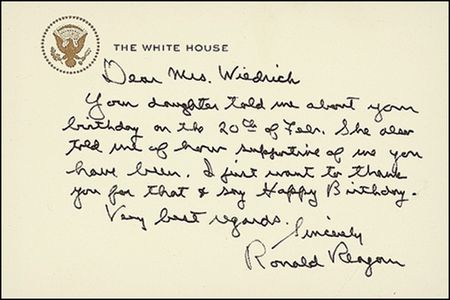 THE WHITE HOUSE
Dear Mrs. Wiedrich
Your daughter told me about your
birthday on the 20th of Feb. She also
told me of how supportive of me you
have been. I just want to thank
you for that & say Happy Birthday.
Very best regards.
Sincerely
Ronald Reagan